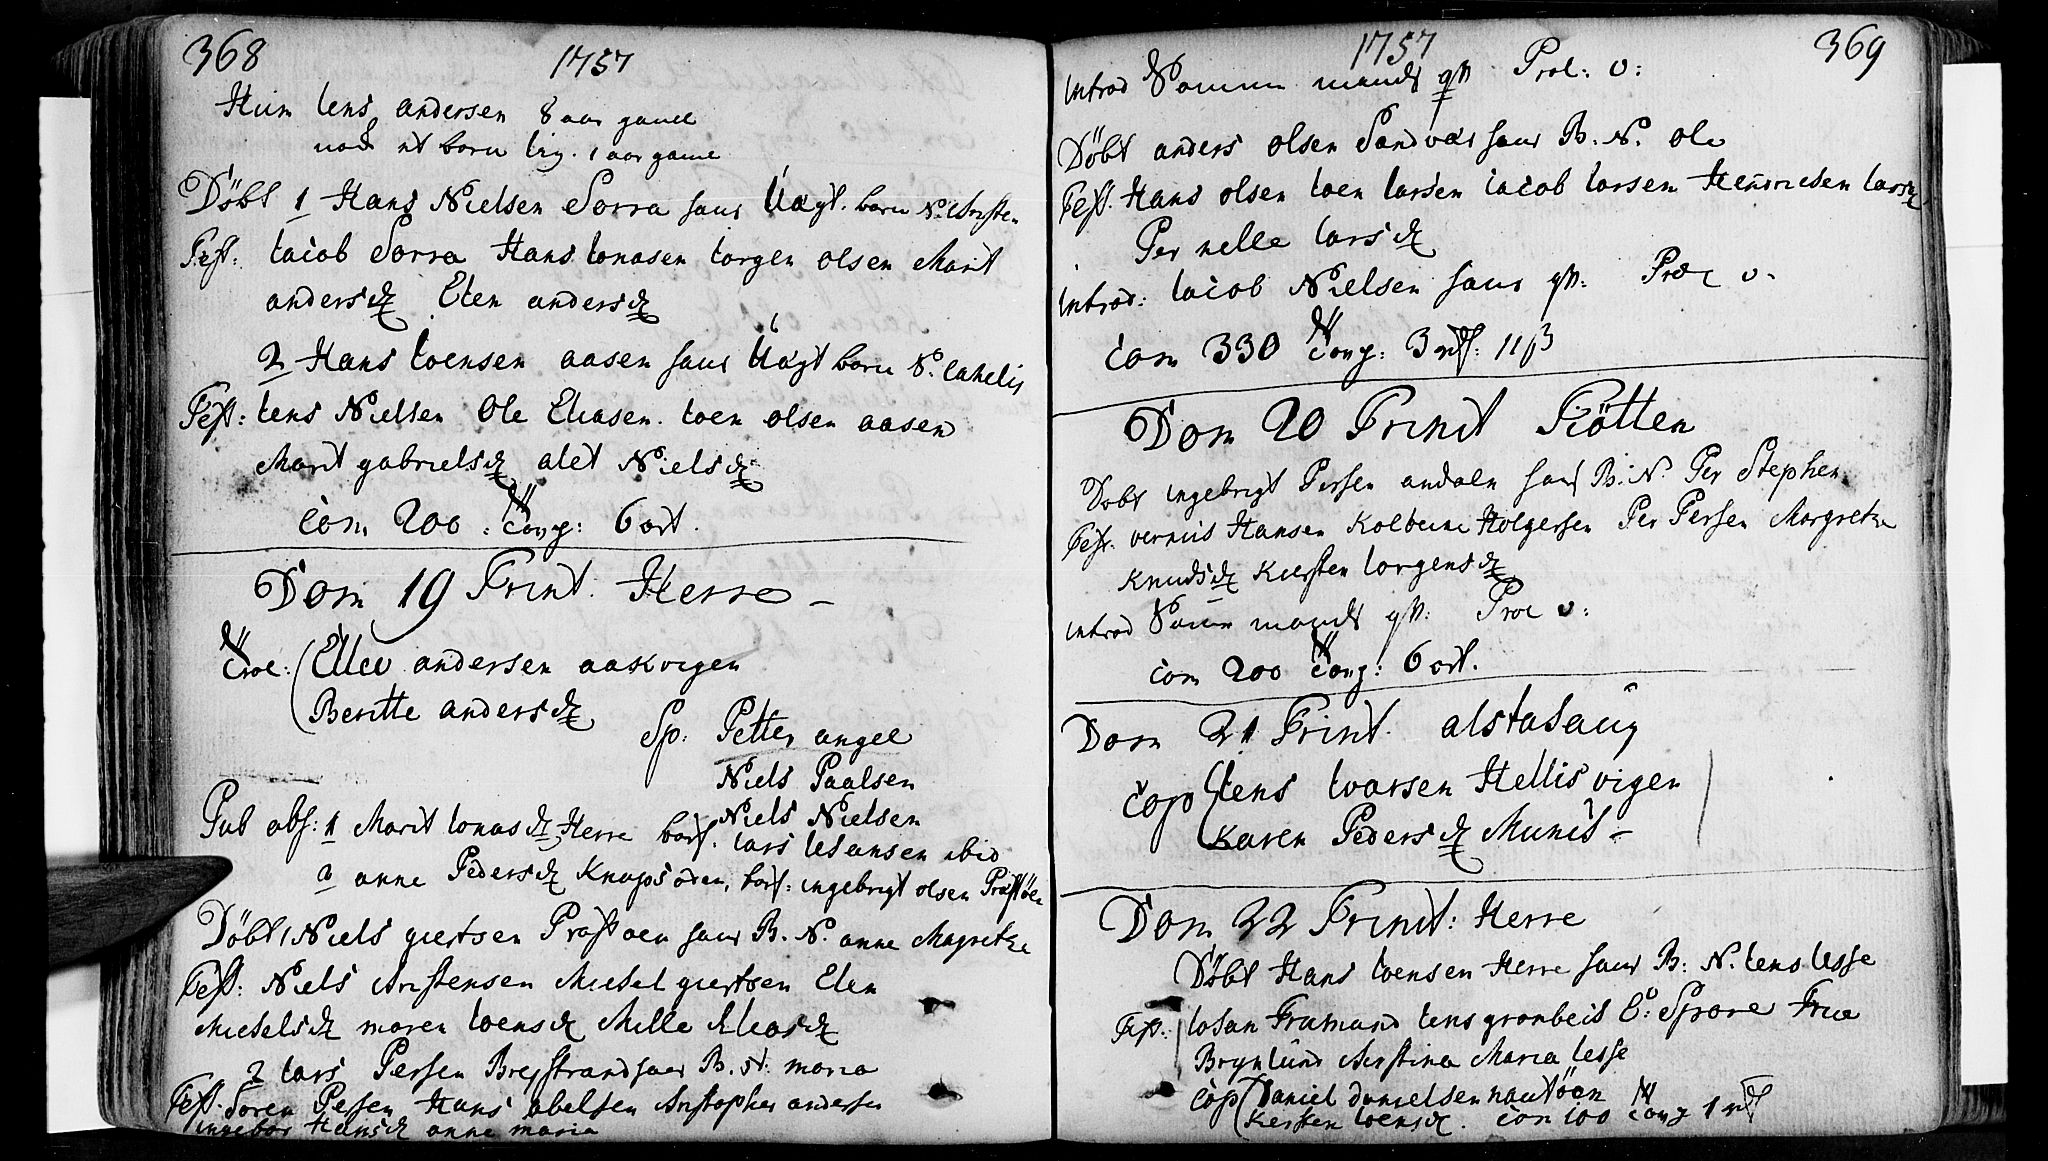 368
1757
Hum Iens andersen 8 aar gamel
nock et barn lig. 1 aar game
Döbt 1 Hans Nielsen Sorra haus Uägt. barn N. Christen
Test: Iacob Sorra Hans Ionasen Iorgen olsen Marit
andersd Elen andersd
2 Hans Ioensen aasen haus Uägt barn N. Cahelis
Test: Iens Nielsen Ole Eliasen. Ioen olsen aasen
Marit gabrielsd alet Nielsd
Com 200 : Cong: 6 ort.
Dom 19 Trinit. Herro -
Trol: Ellev andersen aaskvigen
Beritte andersd
Sp: Petter angel
Niels Paalsen
Pub abs: 1 Marit Ionasd Herre barf. Niels Nielsen
Lars ibid
2 anne Pedersd Knapsöen, barf: ingebrigt olsen Prästöen
Döbt 1 Niels giertsen Prästoen haus B. N. anne Magrethe
Test: Niels Christensen Michel giertsen Elen
Michelsd maren Ioensd Mille Eliasd
2 Lars Persen Breistrand haus B. N: maria
Test. Soren Persen Hans abelsen Christopher andersen
ingebor Hansd anne maria
1757
369
introd Samme mands qv: Prol: v:
Döbt anders olsen Sandvär haus B. N. ole
Test. Hans olsen Ioen Larsen Iacob Larsen Hendrichsen Larsd
Per nelle Larsd
introd: Iacob Nielsen haus qv: Prol v.
Com 330 Cong: 3 rd: 11 ß
Dom 20 Trinit Tiötten
Döbt ingebrigt Persen andaln haus B. N. Per Stephen
Test. vernis Hansen Kolbein Holgersen Per Persen Margrethe
Knudsd Kiersten Iorgensd
introd Samme mands qv: Prol v:
Com 200 Cong: 6 ort.
Dom 21 Trinit. alstahaug
Cop Iens Ivarsen Hellisvigen
Karen Pedersd
Dom 22 Trinit: Herre
Döbt Hans Ioensen Herre haus B: N. Iens Iesse
Test. Iohan Iens gronbeck E: Sprove Frue
Brynlund Christina Maria Iesse
Cop Daniel danielsen
Kersten Ioensd. Com 100 Cong 1 rd